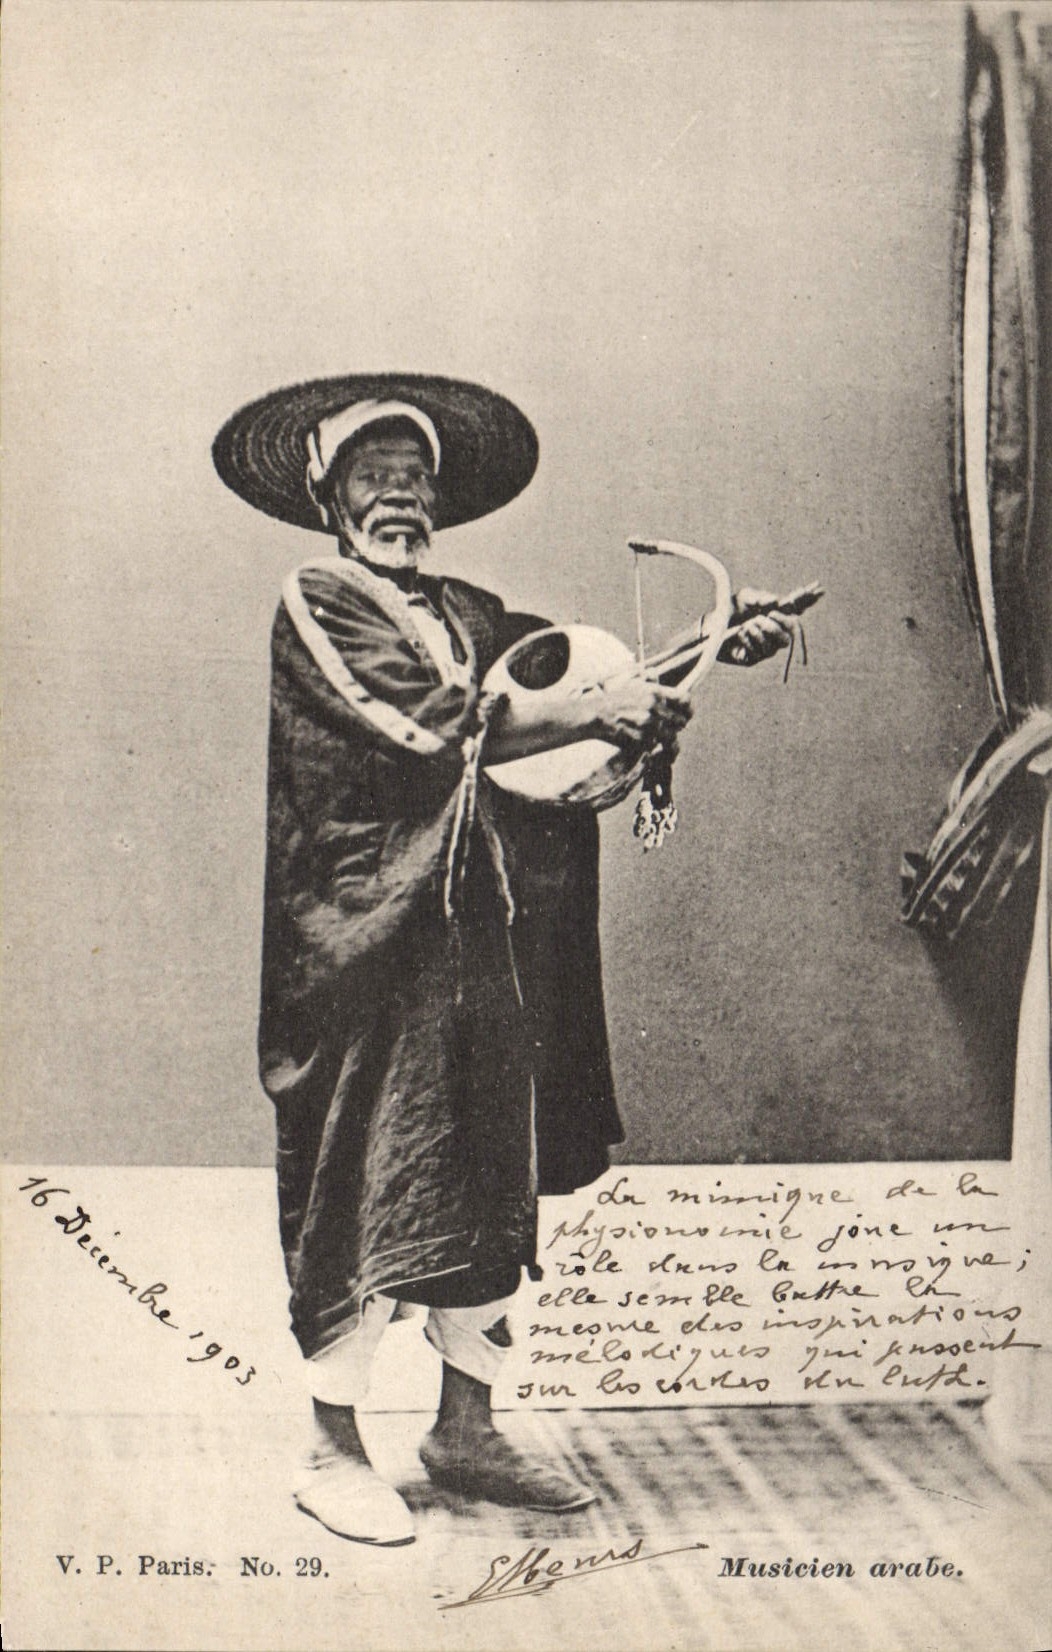 La mimique de la
physionomie joue un
rôle dans la musique;
elle semble battre la
mesure des inspirations
mélodiques qui passent
sur les cordes du luth.
16 Décembre 1903
V. P. Paris. No. 29.
Musicien arabe.